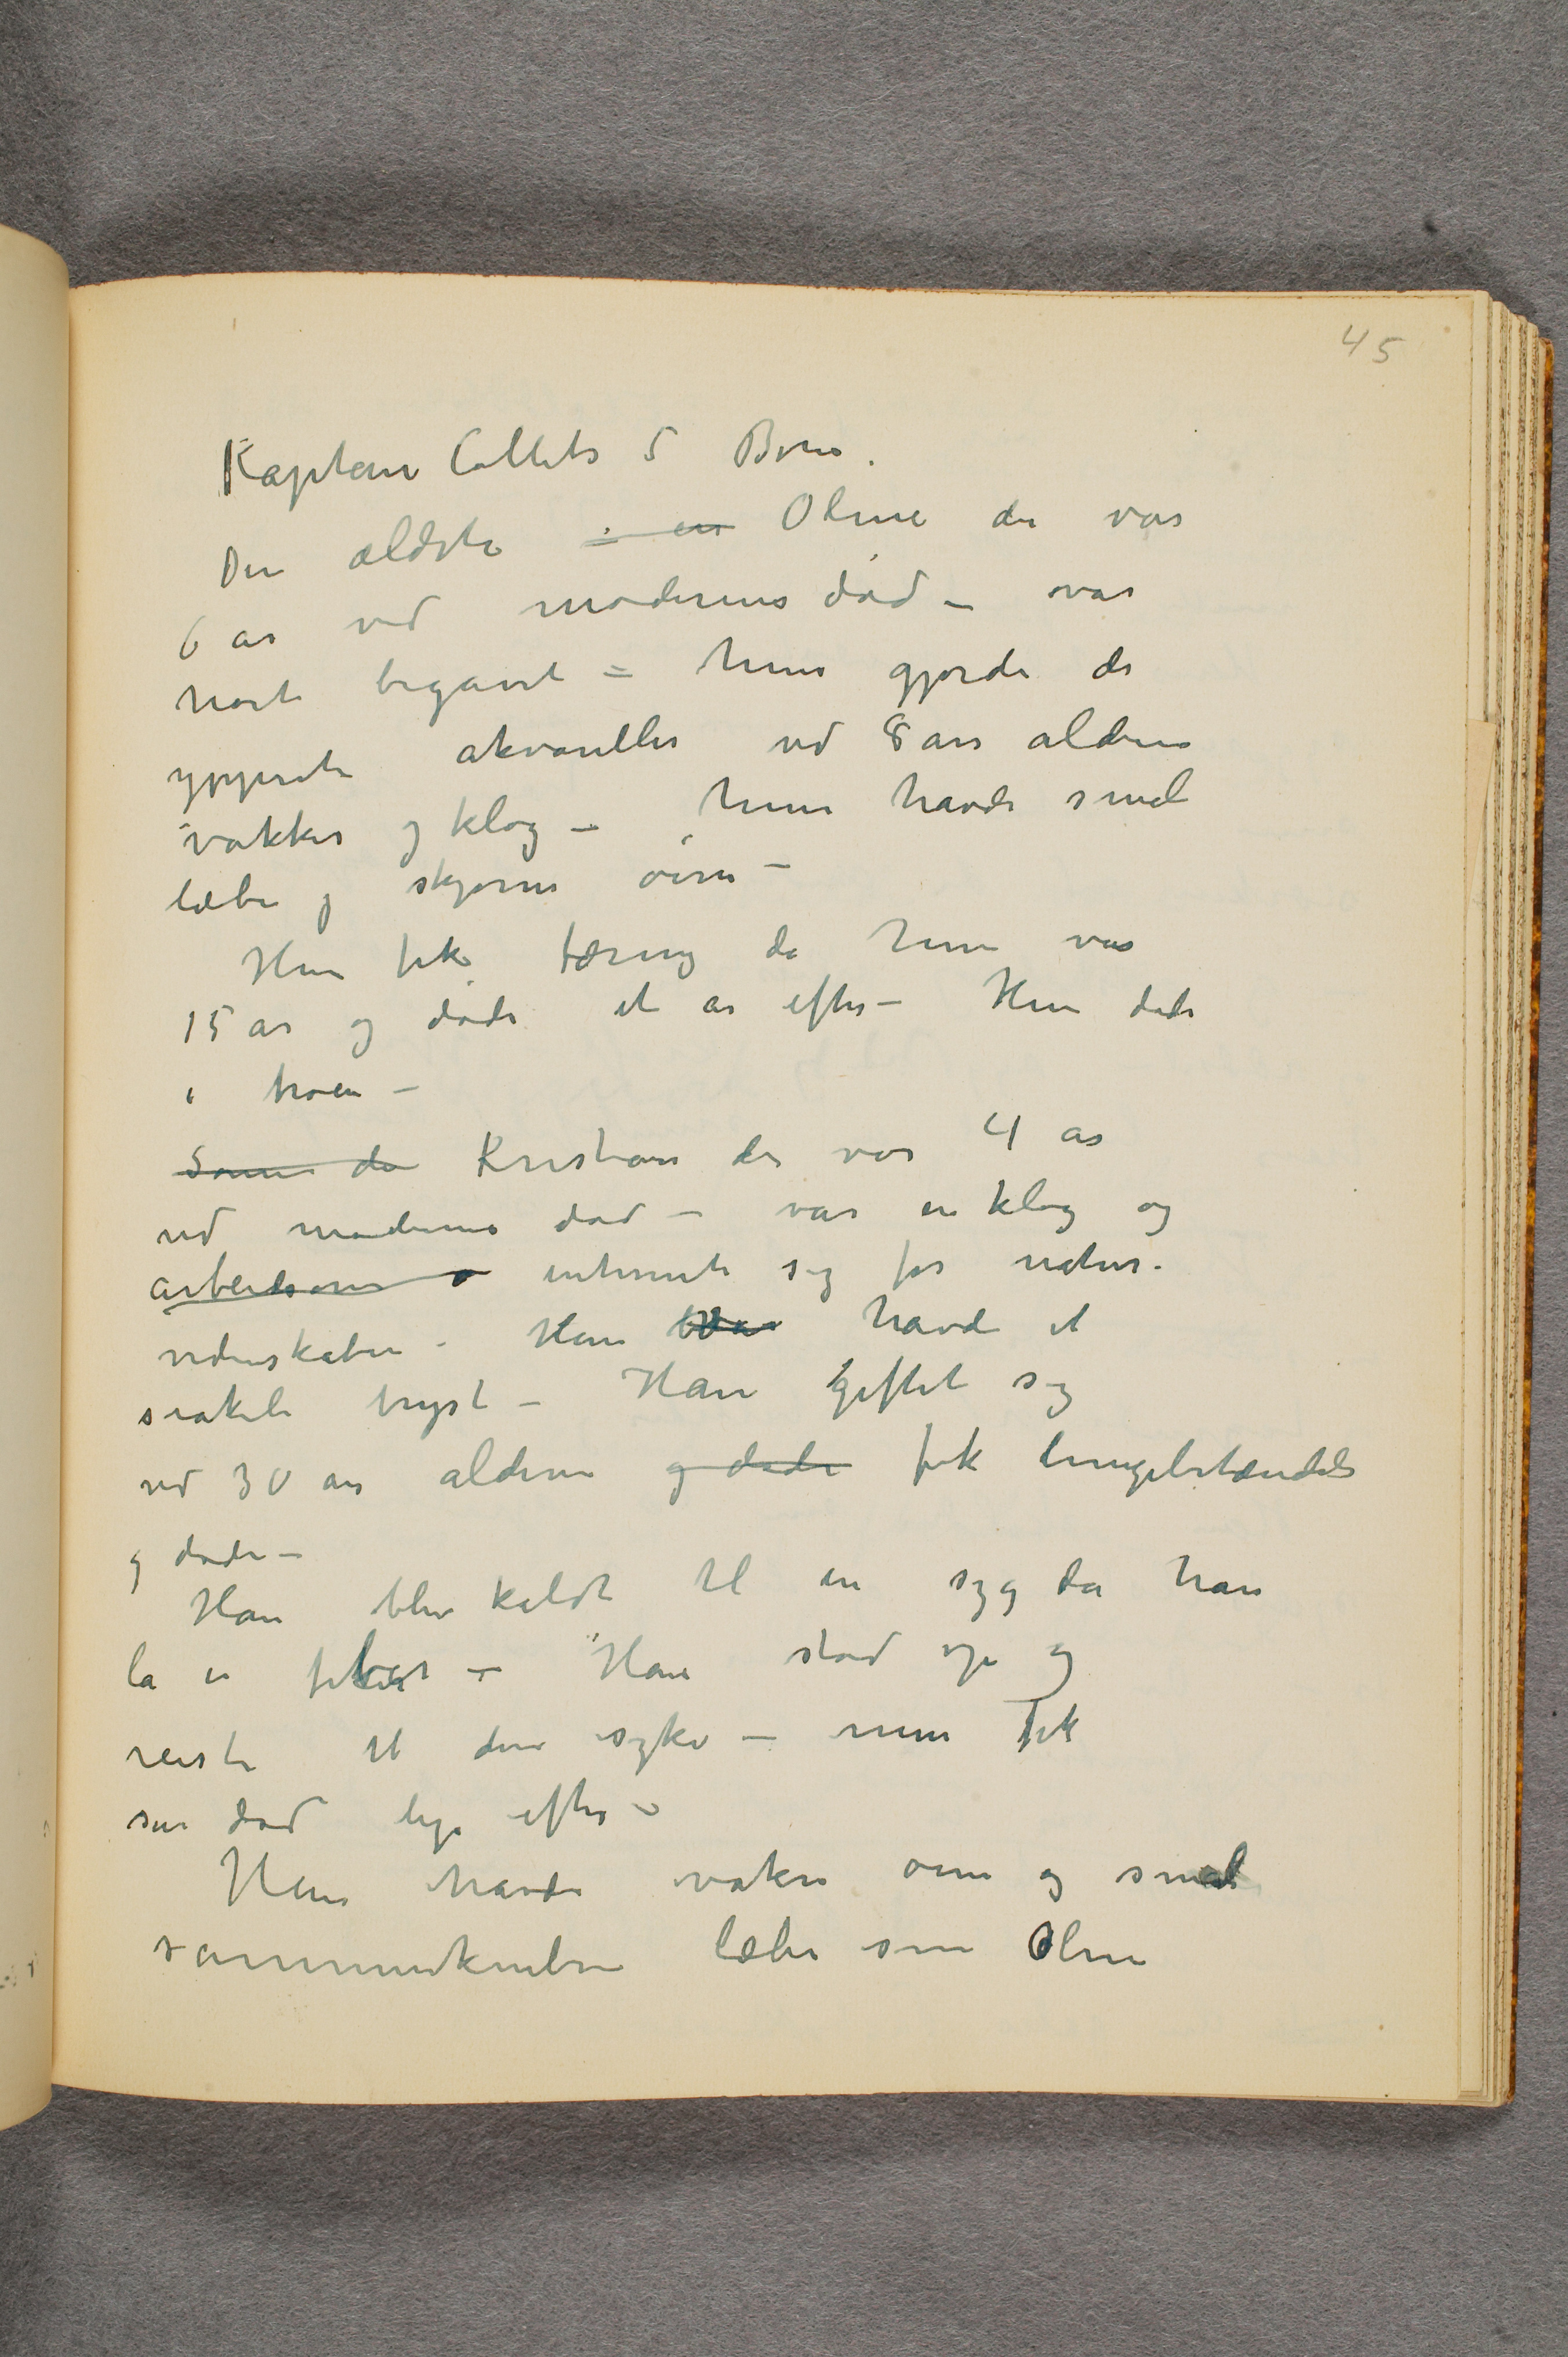 45
Kaptain Colletts 5 Børn.
Den ældste – en Oline der var
6 år ved moderens død – var
høit begavet – hun gjorde de
ypperste akvareller ved 8 års alderen
vakker og klog – hun havde smal
læbe og skjønne øine –
Hun fik tæring da hun var
15 år og døde et år efter – Hun døde
i troen –
Sønnen der Kristian der var 4 år
ved moderens død – var en klog og
arbeidsom o interesserte sig for natur-
videnskaben – Han var havde et
svakeli bryst – Han giftet sig
ved 30 års alderen og døde fik lungebetændelse
og døde –
Han blev kaldt til en syg da han
lå i feber – Han stod op og
reiste til den syke – men fik
sin død lige efter –
Han havde vakre øine og smal
sammenknebne læber som Oline